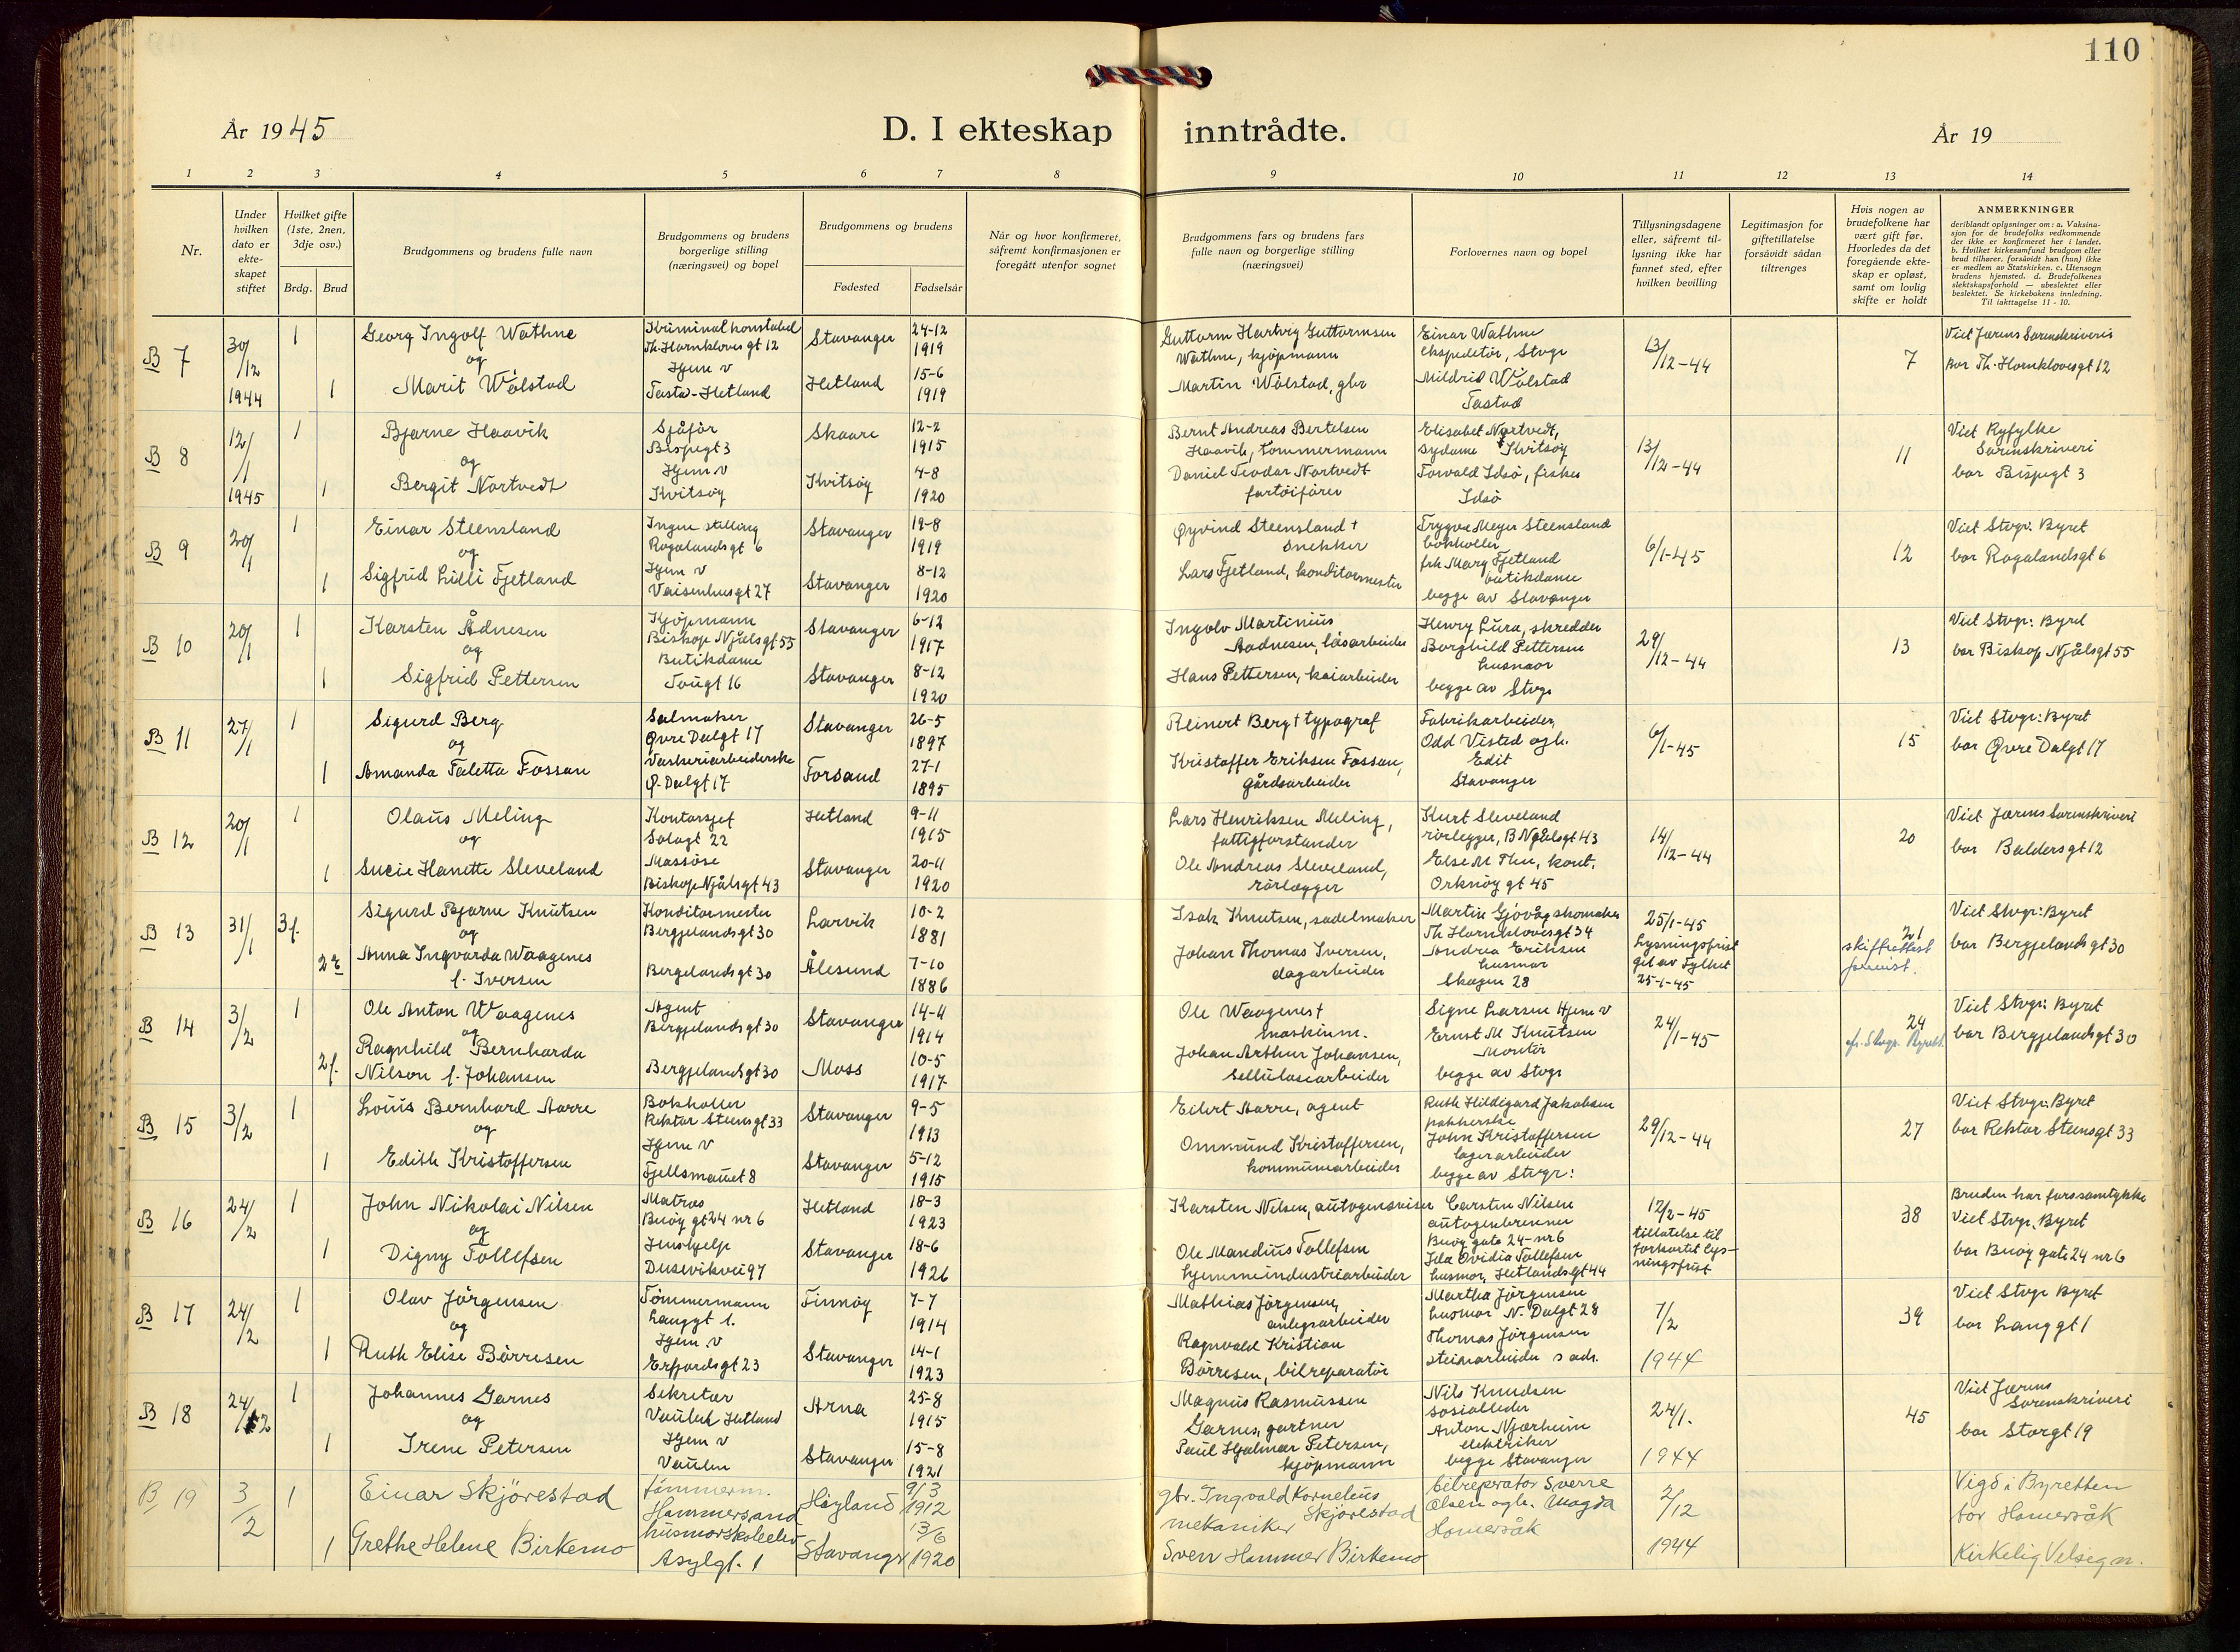 110
År 1945
D. I ekteskap inntrådte.
År 19
1 2 3 4 5 6 7 8 9 10 11 12 13 14
Nr.
Under hvilken dato er ekte-skapet stiftet
Hvilket gifte (1ste, 2nen, 3dje osv.)
Brdg. Brud
Brudgommens og brudens fulle navn
Brudgommens og brudens borgerlige stilling (næringsvei) og bopel
Brudgommens og brudens
Fødested Fødselsår
Når og hvor konfirmeret, såfremt konfirmasjonen er foregått utenfor sognet
Brudgommens fars og brudens fars fulle navn og borgerlige stilling (næringsvei)
Forlovernes navn og bopel
Tillysningsdagene eller, såfremt til-lysning ikke har funnet sted, efter hvilken bevilling
Legitimasjon for giftetillatelse forsåvidt sådan tiltrenges
Hvis nogen av brudefolkene har vært gift før. Hvorledes da det foregående ekte-skap er opløst, samt om lovlig skifte er holdt
ANMERKNINGER
deriblandt oplysninger om: a. Vaksina-sjon for de brudefolks vedkommende der ikke er konfirmeret her i landet. b. Hvilket kirkesamfund brudgom eller brud tilhører, forsåvidt han (hun) ikke er medlem av Statskirken. c. Utensogn brudens hjemsted. d. Brudefolkenes slektskapsforhold — ubeslektet eller beslektet. Se kirkebokens innledning. Til iakttagelse 11 - 10.
B 7 30/12 1944 1 Georg Ingolf Wathne Kriminalkonstabel Th. Hornkloves gt 12 Stavanger 24-12 1919
og
1 Marit Wålstad Hjem v Tasta-Hetland Hetland 15-6 1919
Guttorm Hartvig Guttormsen Wathne, kjöpmann
Martin Wålstad, gbr
Einar Wathne ekspeditør, Stvgr
Mildrid Wålstad Tastad
13/12-44 7 Viet Jærens Sorenskriveri
bor Th. Hornklovesgt 12
B 8 12/1 1945 1 Bjarne Haavik Sjåfør Bispegt 3 Skaare 12-2 1915
og
1 Bergit Nortvedt Hjem v Kvitsøy Kvitsøy 4-8 1920
Bernt Andreas Bertelsen Haavik, tömmermann
Daniel Teodor Nortvedt fartöiförer
Elisabet Nortvedt, sydame Kvitsöy
Torvald Idsö, fisker Idsö
13/12-44 11 Viet Ryfylke Sorenskriveri
bor Bispegt 3
B 9 20/1 1 Einar Steensland Ingen stilling Rogalandsgt 6 Stavanger 19-8 1919
og
1 Sigfrid Lilli Fjetland Hjem v Vaisenhusgt 27 Stavanger 8-12 1920
Øyvind Steensland † snekker
Lars Fjetland, konditormester
Trygve Meyer Steensland bokholler
frk Marg Fjetland butikdame
begge av Stavanger
6/1-45 12 Viet Stvgr. Byret
bor Rogalandsgt 6
B 10 20/1 1 Karsten Ådnesen Kjöpmann Biskop Njålsgt 55 Stavanger 6-12 1917
og
1 Sigfrid Pettersen Butikdame Tougt 16 Stavanger 8-12 1920
Ingolv Martinius Aadnesen, låsarbeider
Hans Pettersen, kaiarbeider
Henry Lura, skredder
Borghild Pettersen husmor
begge av Stvgr
29/12-44 13 Viet Stvgr: Byret
bor Biskop Njålsgt 55
B 11 27/1 1 Sigurd Berg Salmaker Øvre Dalgt 17 Stavanger 26-5 1897
og
1 Amanda Taletta Fossan Vaskeriarbeiderske Ø. Dalgt 17 Forsand 27-1 1895
Reinert Berg † typograf
Kristoffer Eriksen Fossan, gårdsarbeider
Fabrikarbeider, Odd Visted og h. Edit Stavanger
6/1-45 15 Viet Stvgr: Byret
bor Øvre Dalgt 17
B 12 20/1 1 Olaus Meling Kontorsjef Solagt 22 Hetland 9-11 1915
og
1 Lucie Hanette Sleveland Massöse Biskop Njålsgt 43 Stavanger 20-11 1920
Lars Henriksen Meling, fattigforstander
Ole Andreas Sleveland, rörlegger
Kurt Sleveland rörlegger, B Njålsgt 43
Else M Thu, kont. Orknöygt 45
14/12-44 20 Viet Jærens Sorenskriveri
bor Baldersgt 12
B 13 31/1 3f. Sigurd Bjarne Knutsen Konditormester Bergjelandsgt 30 Larvik 10-2 1881
og
2e Anna Ingvarda Waagenes f. Iversen Bergelandsgt 30 Ålesund 7-10 1886
Isak Knutsen, sadelmaker
Johan Thomas Iversen, dagarbeider
Martin Gjövåg skomaker Th Hornklovesgt 34
Andrea Eriksen husmor Skagen 28
25/1-45 Lysningsfrist git av Fylket 25-1-45
21 skifteattest forevist.
Viet Stvgr: Byret
bor Bergjelandsgt 30
B 14 3/2 1 Ole Anton Waagenes Agent Bergjelandsgt 30 Stavanger 14-4 1914
og
2f. Ragnhild Bernharda Nilson f. Johansen Bergjelandsgt 30 Moss 10-5 1917
Ole Waagenes † maskinm.
Johan Arthur Johansen, Sellulosearbeider
Signe Larsen Hjem v
Ernst M Knutsen Montör
begge av Stvgr
24/1-45 24 Viet Stvgr: Byret
bor Bergjelandsgt 30
B 15 3/2 1 Louis Bernhard Aarre Bokholler Rektor Steensgt 33 Stavanger 9-5 1913
og
1 Edith Kristoffersen Hjem v Fjellsmauet 8 Stavanger 5-12 1915
Eilert Aarre, agent
Ommund Kristoffersen, kommunearbeider
Ruth Hildigard Jakobsen pakkerske
John Kristoffersen lagerarbeider
begge av Stvgr:
29/12-44 27 Viet Stvgr: Byret
bor Rektor Steensgt 33
B 16 24/2 1 John Nikolai Nilsen Matros Buöy gt 24 nr 6 Hetland 18-3 1923
og
1 Digny Tollefsen Hushjelp Dusevikvei 97 Stavanger 18-6 1926
Karsten Nilsen, autogensveiser
Ole Mandius Tollefsen hjemmeindustriarbeider
Carsten Nilsen autogenbrenner Buöy gate 24 - nr 6
Ida Ovidia Tollefsen husmor, Hetlandsgt 44
12/2-45 tillatelse til forkortet lys-ningsfrist
38 Bruden har fars samtykke
Viet Stvgr. Byret
bor Buöy gate 24 nr 6
B 17 24/2 1 Olav Jörgensen Tömmermann Langgt 1. Finnöy 7-7 1914
og
1 Ruth Elise Börresen Hjem. v Erfjordsgt 23 Stavanger 14-1 1923
Mathias Jörgensen, anlegsarbeider
Ragnvald Kristian Börresen, bilreparatör
Martha Jörgensen husmor N. Dalgt 28
Thomas Jörgensen steinarbeider s adr.
7/2 1944 39 Viet Stvgr Byret
bor Langgt 1
B 18 24/2 1 Johannes Garnes Sekretær Vaulen Hetland Arna 25-8 1915
og
1 Irene Petersen Hjem v Vaulen Stavanger 15-8 1921
Magnus Rasmussen Garnes, gartner
Paul Hjalmar Petersen, kjöpmann
Nils Knudsen sosialleder
Anton Njærheim elektriker
begge Stavanger
24/1. 1944 45 Viet Jærens Sorenskriveri
bor Storgt 19
B 19 3/2 1 Einar Skjörestad tömmerm. Hommersand Höyland 9/3 1912
1 Grethe Helene Birkemo husmorskoleelev Asylgt. 1 Stavanger 13/6 1920
gbr. Ingvald Kornelius Skjörestad
mekaniker Sven Hammer Birkemo
bilreparatör Sverre Olsen og h. Magda Homersåk
2/12 1944
Vigd i Byretten
bor Homersåk
Kirkelig Velsegn.